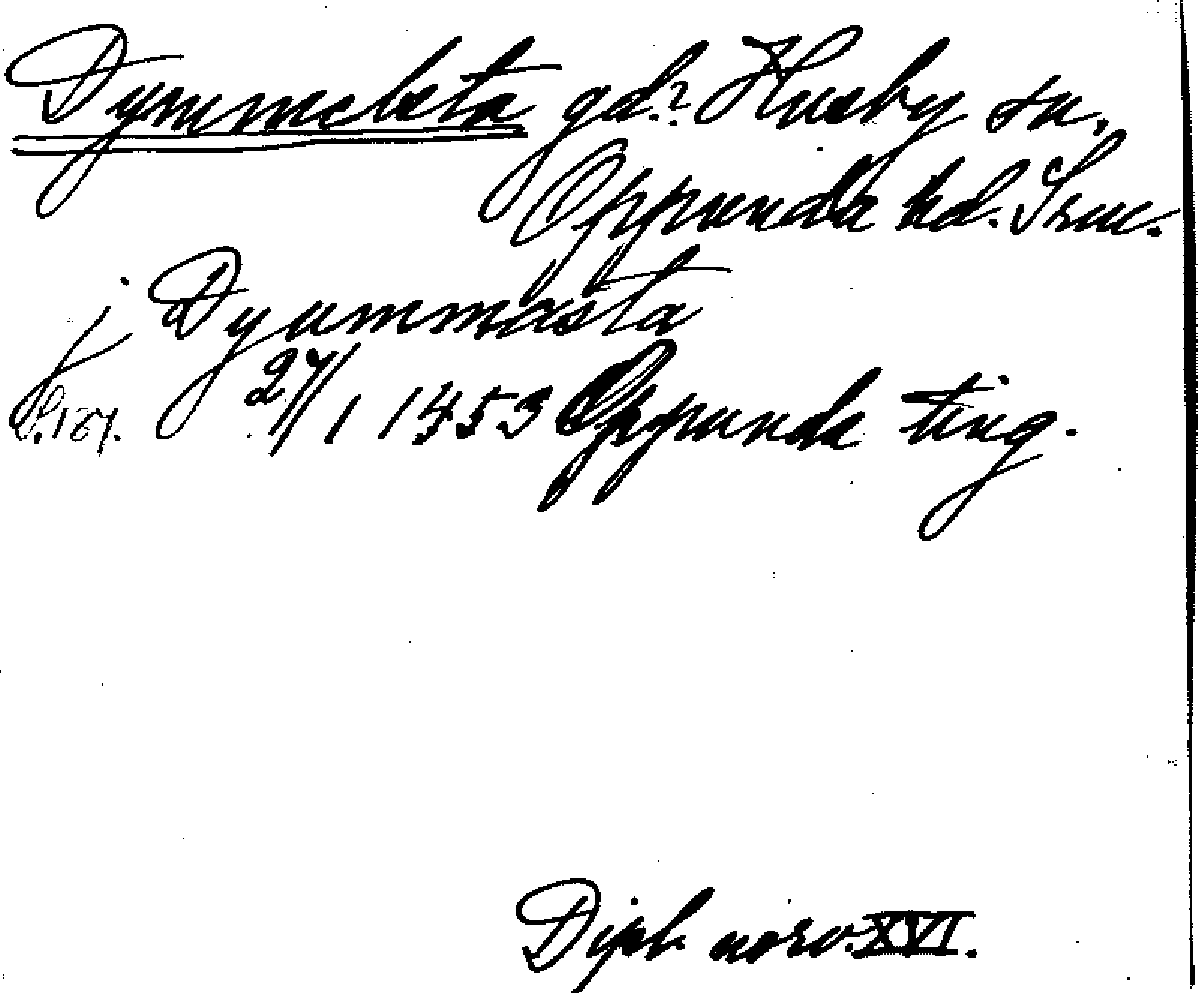 Dymmelsta gd? Husby sn.
Oppunda hd. Srm.
j Dyummæsta
27/1 1453 Oppunda ting.
Dipl. norv. XVI.